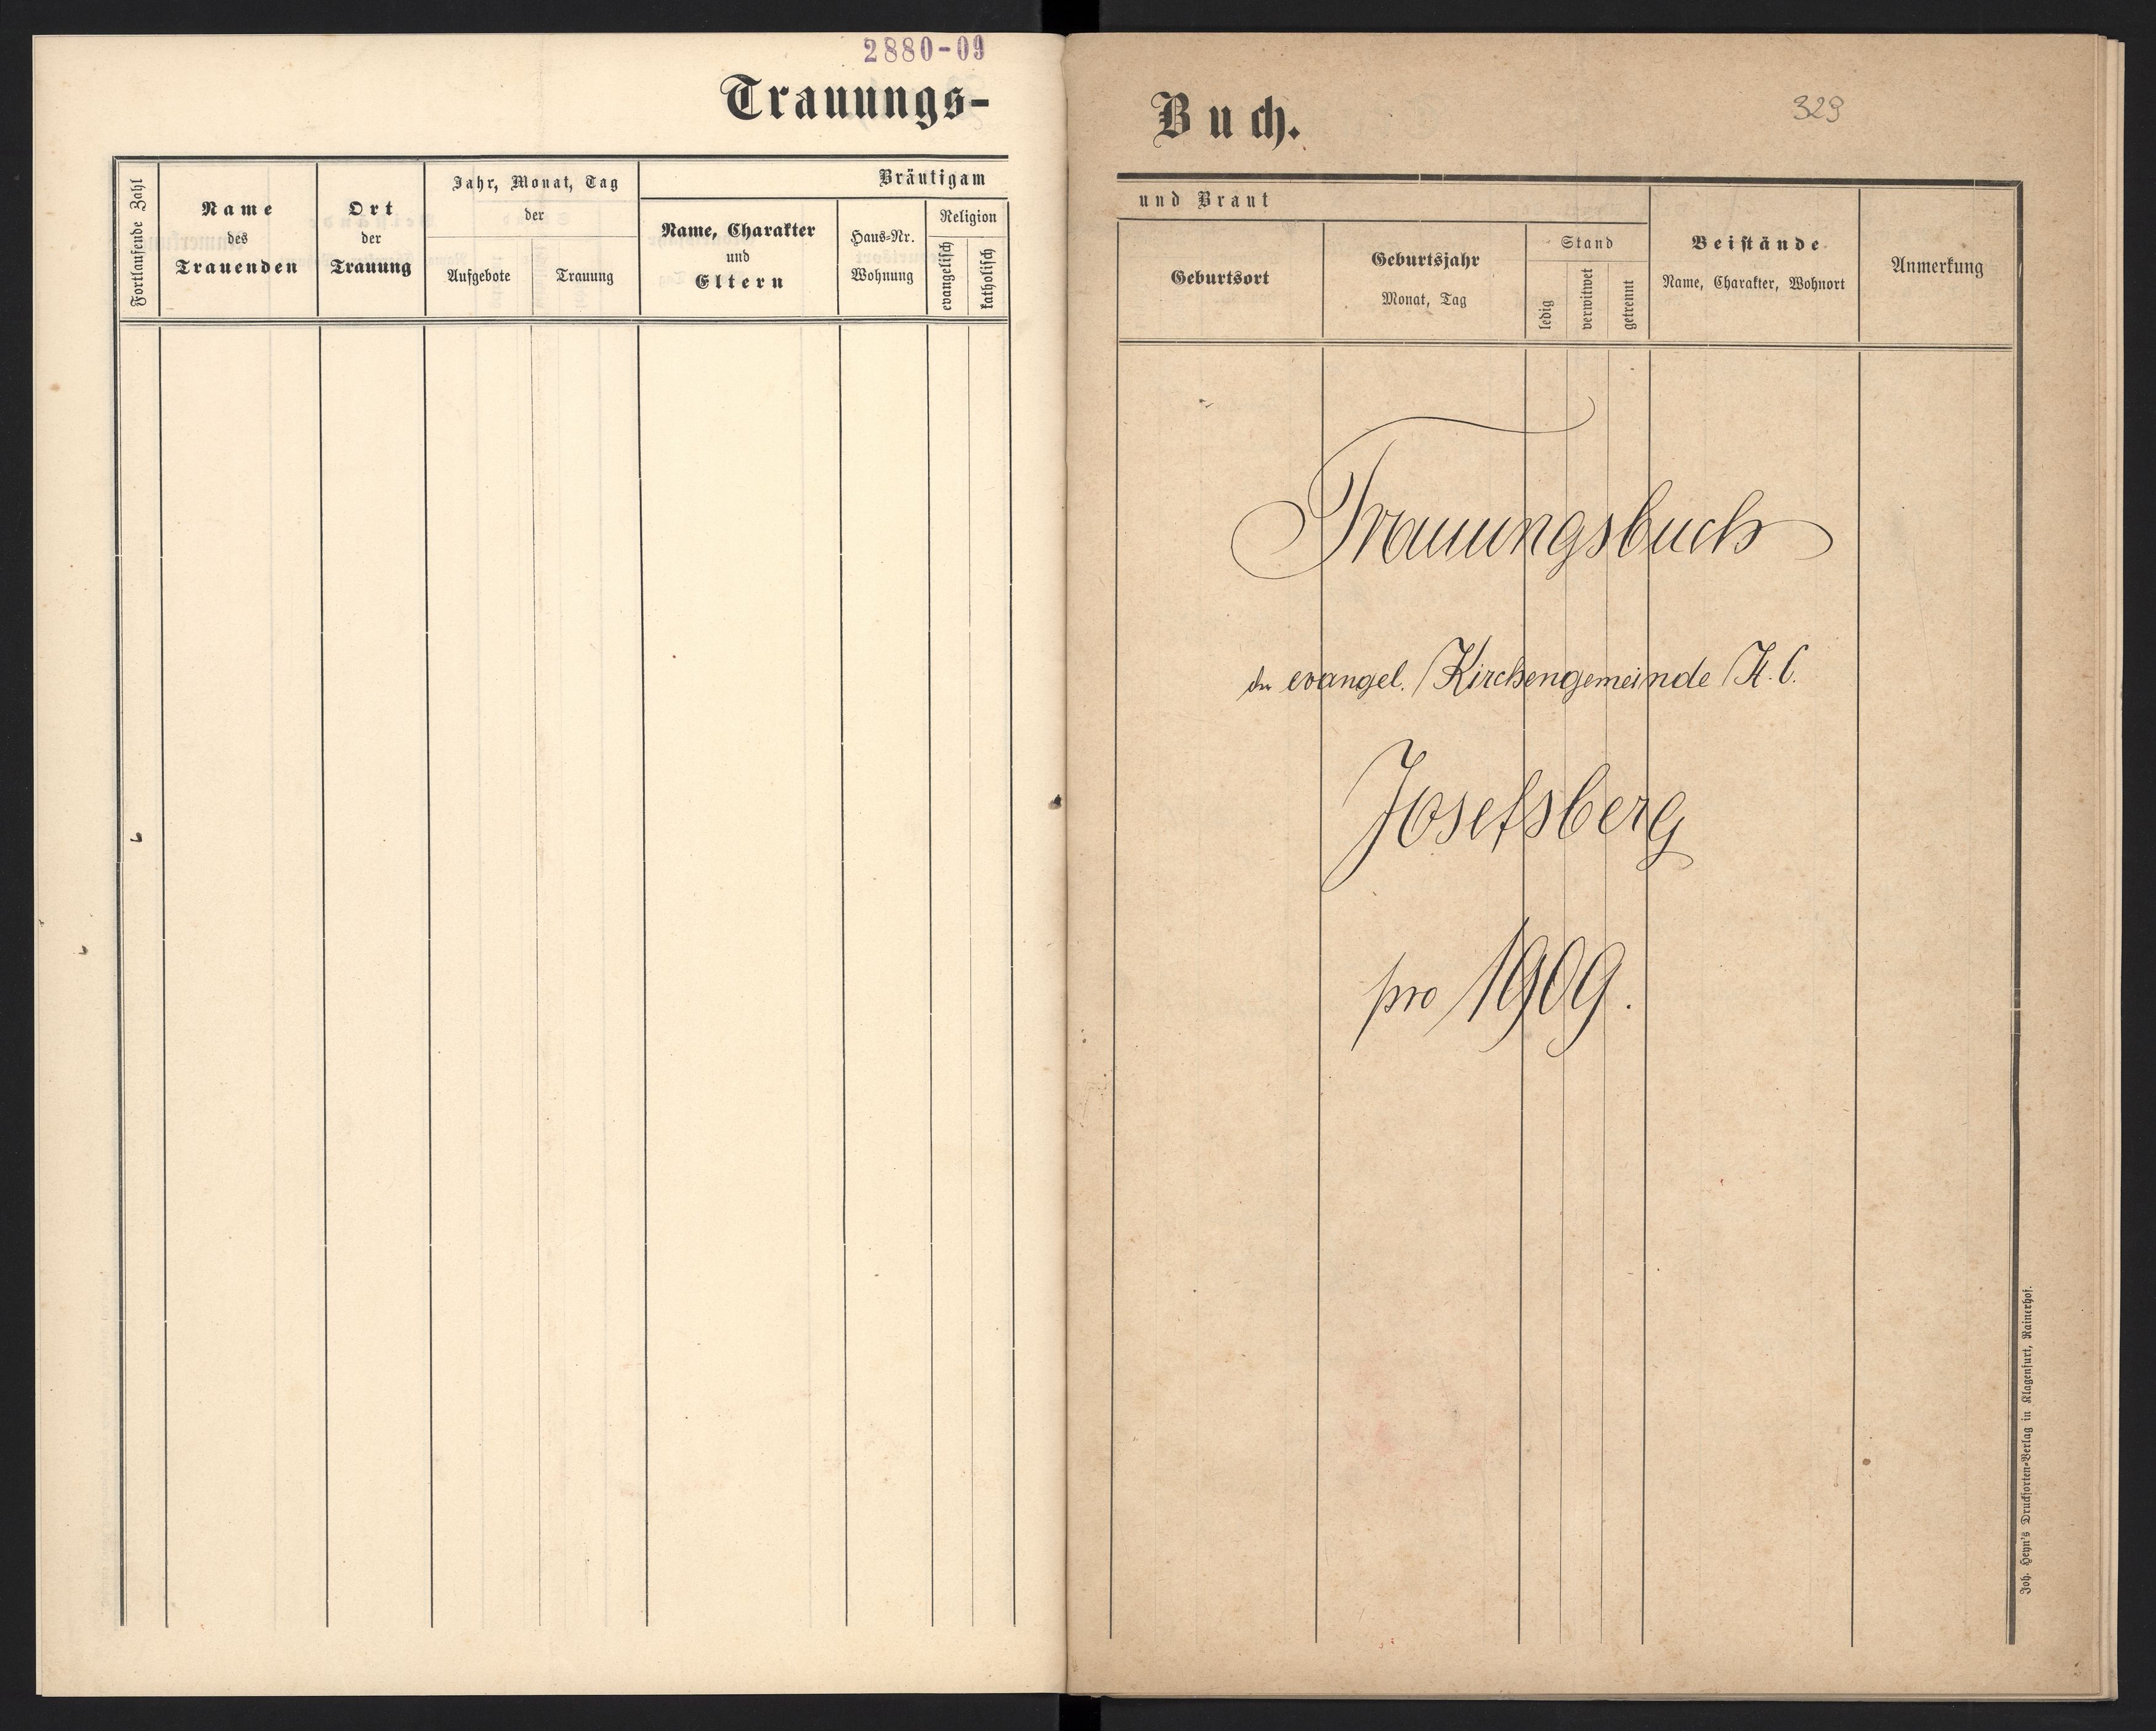 2880-09
Trauungs-
Fortlaufende Zahl
Name
des
Trauenden
Ort
der
Trauung
Jahr, Monat, Tag
der
Aufgebote
Trauung
Bräutigam
Name, Charakter
und
Eltern
Haus-Nr.
Wohnung
Religion
evangelisch
katholisch
Buch.
329
und Braut
Geburtsort
Geburtsjahr
Monat, Tag
Stand
ledig
verwitwet
getrennt
Beistände
Name, Charakter, Wohnort
Anmerkung
Trauungsbuch
der evangel. Kirchengemeinde H. C.
Josefsberg
pro 1909.
Joh. Heyn's Drucksorten-Verlag in Klagenfurt, Rainerhof.